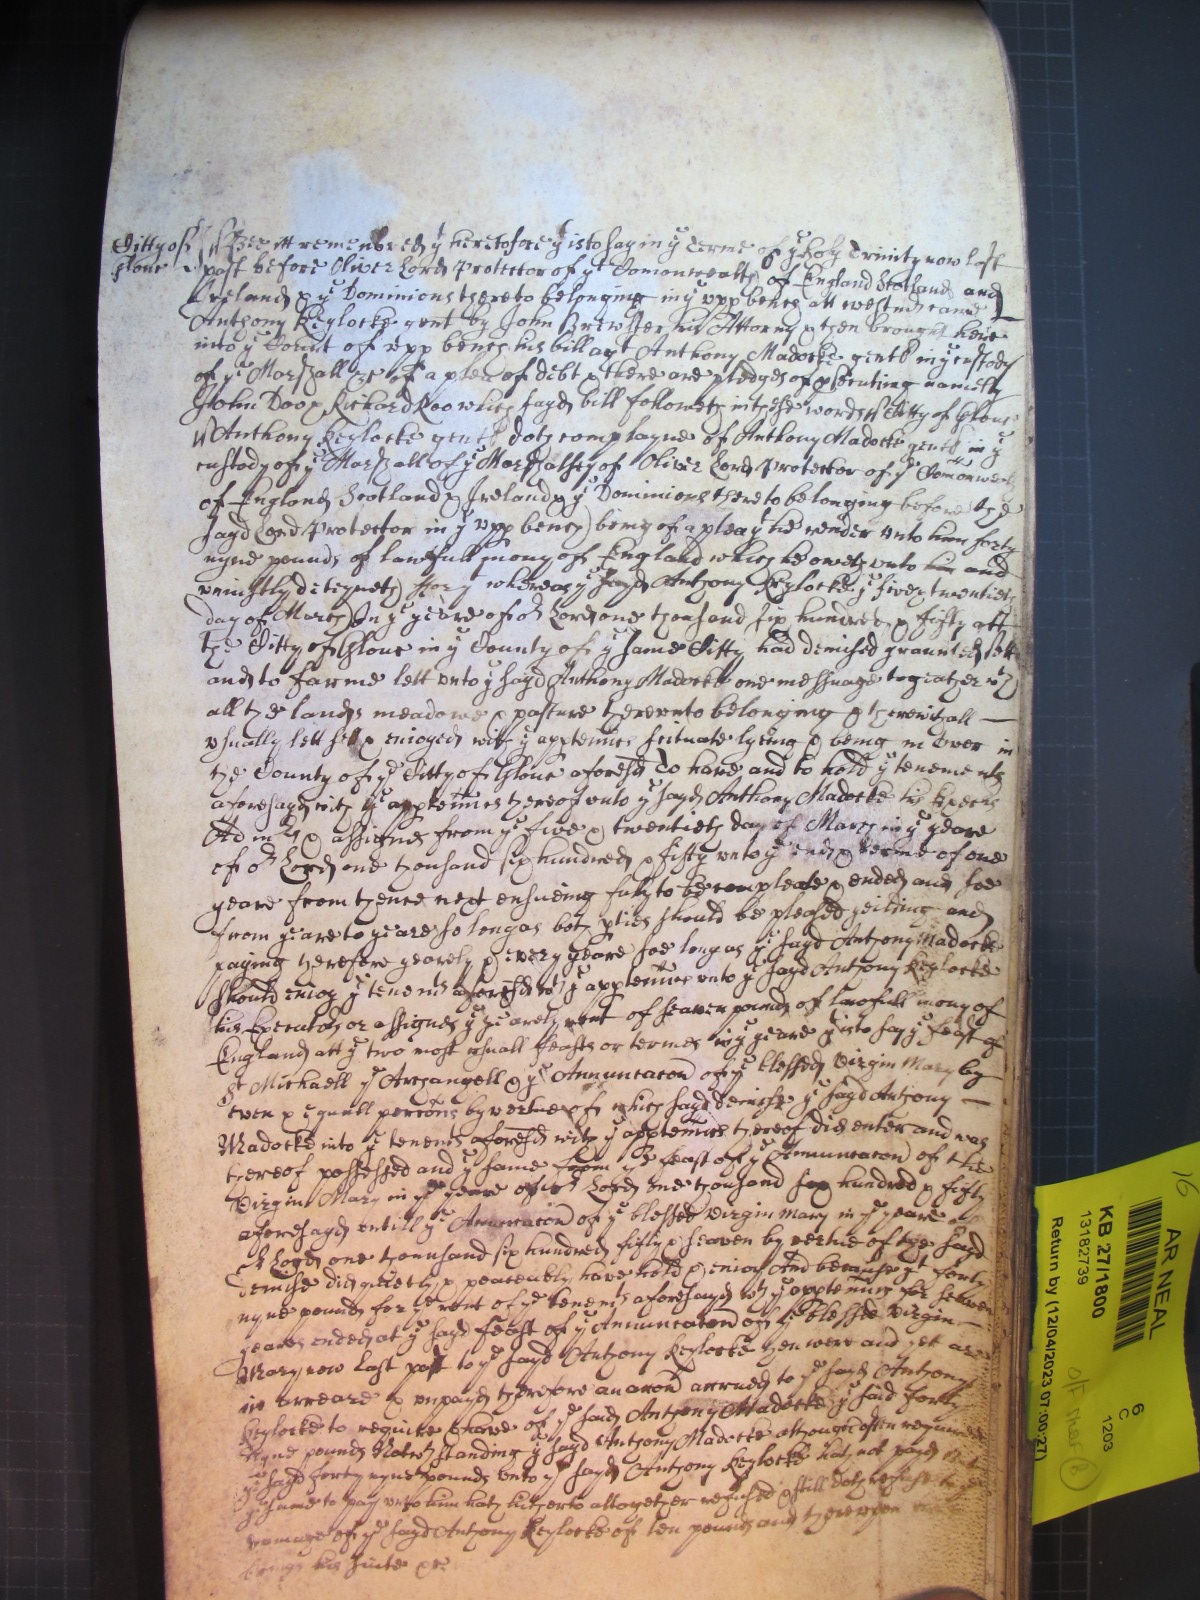 Citty of Glouc Bee itt remembred yt heretofore yt is to say in ye Terme of ye Holy Trinity now last
past before Oliver Lord Protector of ye Comonwealth of England Scotland and
Ireland & ye Dominions thereto belonging in ye upp bench att westmr came
Anthony Keylocke gent by John Brewster his Attorny & then brought here
into ye Court of upp bench his bill agt Anthony Madocke gent in ye custody
of ye Marshall &c of a plea of debt & there are pledges of psecuting namely
John Doo & Richard Roo which sayd bill followeth in these words ss Citty of Glouc
ss Anthony Keylocke gent doth complayne of Anthony Madocke gent in ye
custody of ye Marshall of ye Marshalsey of Oliver Lord Protector of ye Comonwealth
of England Scotland & Ireland & ye Dominions thereto belonging before the
sayd Lord Protector in ye upp bench being of a plea yt he render unto him forty
nyne pounds of lawfull mony of England which he oweth unto him and
uniustly deteyneth For yt whereas ye sayd Anthony Keylocke ye five & twentieth
day of March In ye yeare of or Lord one thousand six hundred & fifty att
the Citty of Glouc in ye County of ye same Citty had demised graunted sett
and to farme lett unto ye sayd Anthony Madocke one messuage togeather wth
all the lands meadowe & pasture thereunto belonging & therewithall
usually lett sett & enioyed with ye apptennces scituate lyeing & being in Over in
the County of ye Citty of Glouc aforesd To have and to hold ye tenements
aforesayd with ye apptennces thereof unto ye sayd Anthony Madocke his Execrs
Admrs & assignes from ye five & twentieth day of March in ye yeare
of or Lord one thousand six hundred & fifty unto ye end & terme of one
yeare from thence next ensueing fully to be compleate & ended and soe
from yeare to yeare so long as both pties should be pleased yeilding and
paying therefore yearely & every yeare soe long as ye sayd Anthony Madocke
should enioy ye tenemts aforesd wth ye apptennces unto ye sayd Anthony Keylocke
his Executors or assignes ye yearely rent of seaven pounds of lawfull mony of
England att ye two most usuall feasts or termes in ye yeare yt is to say ye feast of
St Michaell ye Archangell & ye Annuncacon of ye blessed Virgin Mary by
even & equall porcons by vertue of which sayd demise ye sayd Anthony
Madocke into ye tenemts aforesd with ye apptennces thereof did enter and was
thereof possessed and ye same from ye feast of ye Annuncacon of the
Virgin Mary in ye yeare of or Lord one thousand six hundred & fifty
aforesayd untill ye Annuncacon of ye blessed Virgin Mary in ye yeare of
or Lord one thousand six hundred fifty & seaven by vertue of the sayd
demise did quietly & peaceably have hold & enioy And because yt forty
nyne pounds for ye rent of ye tenemts aforesayd wth ye apptennces for seaven
yeares ended at ye sayd feast of ye Annuncacon of ye blessed Virgin
Mary now last past to ye sayd Anthony Keylocke then were and yet are
in arreare & unpayd therefore an accon accrued to ye sayd Anthony
Keylocke to require & have of ye sayd Anthony Madocke ye said forty
nyne pounds Notwthstanding ye sayd Anthony Madocke although often required
ye sayd forty nyne pounds unto ye sayd Anthony Keylocke hath not payd but
ye same to pay unto him hath hitherto altogether refused & still doth refuse to ye
damage of ye sayd Anthony Keylocke of ten pounds and thereupon
brings his suite &c
16
AR NEAL
KB 27/1800
13182739
Return by (12/04/2023 07:00:27)
6
C
1203